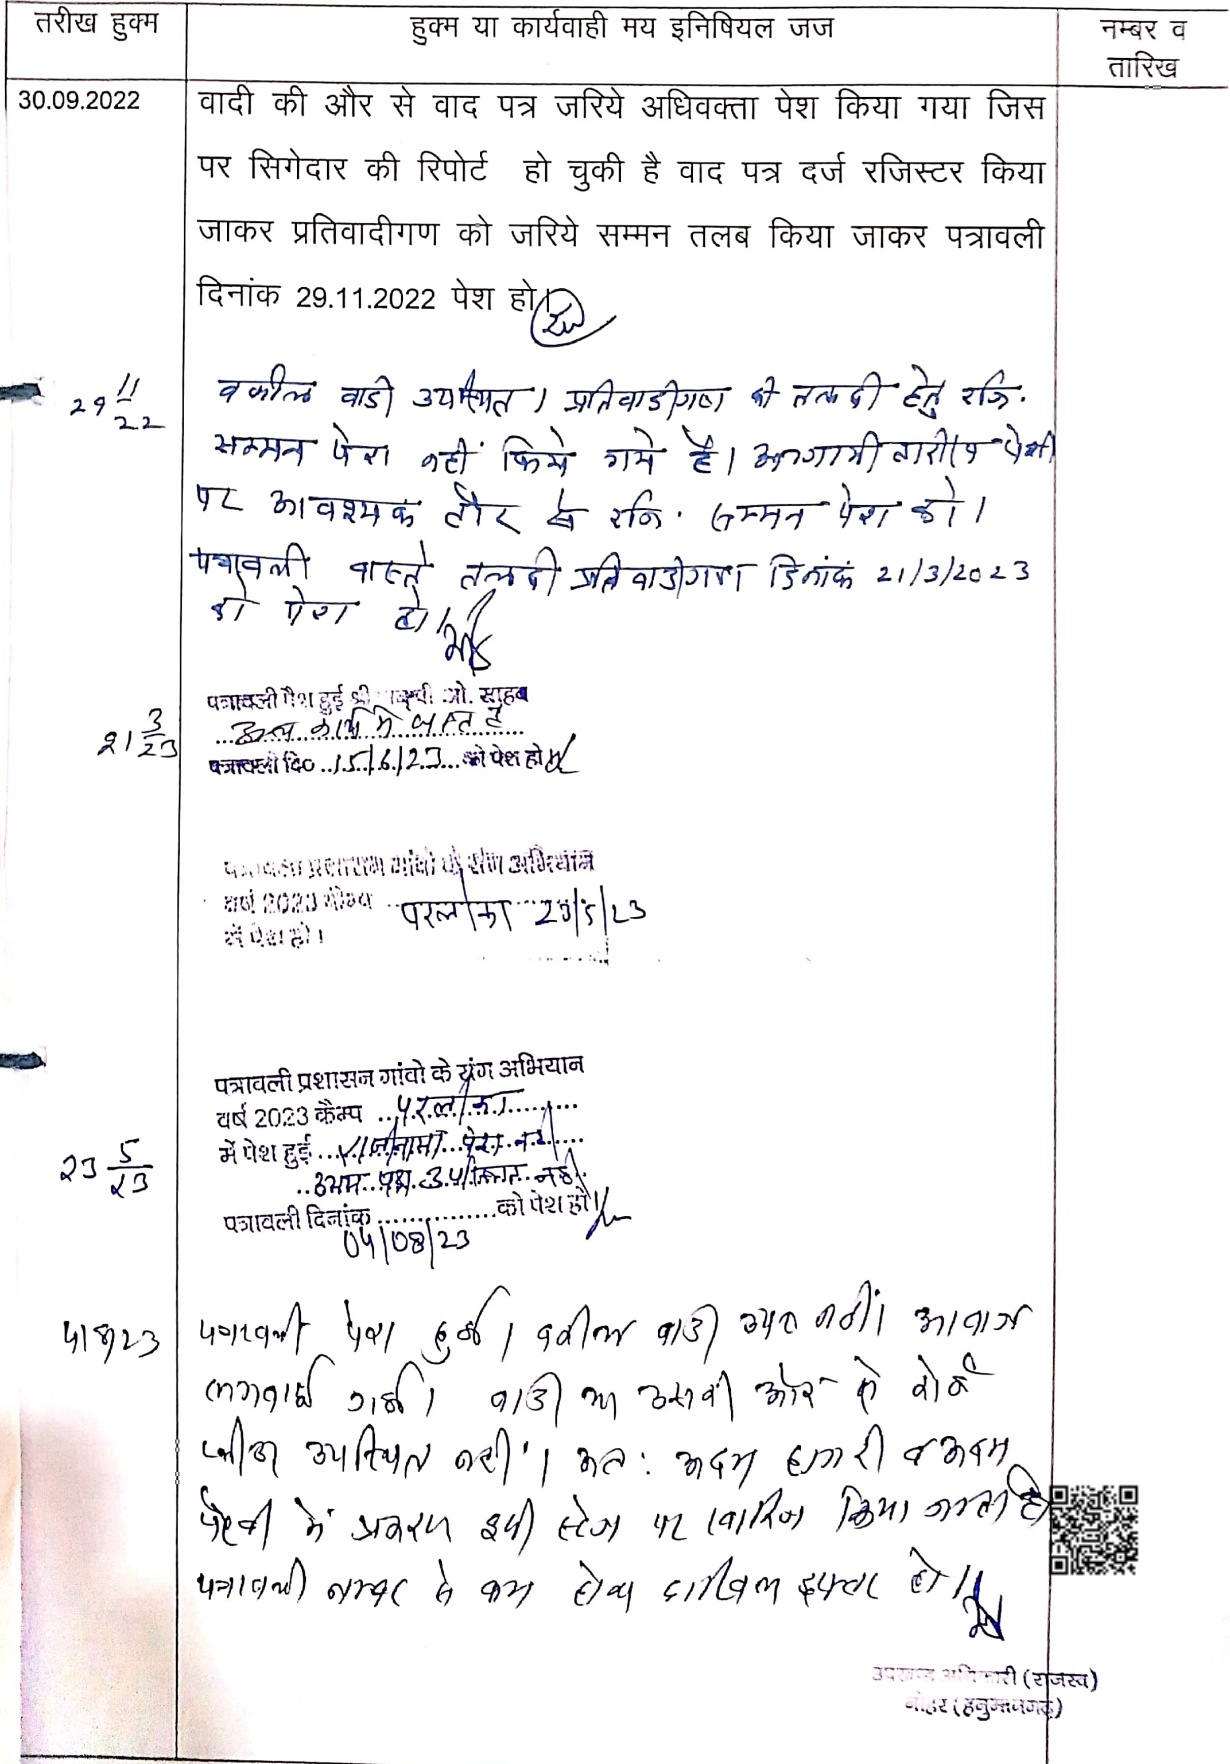 तरीख हुक्म
हुक्म या कार्यवाही मय इनिषियल जज
नम्बर व
तारिख
30.09.2022
वादी की और से वाद पत्र जरिये अधिवक्ता पेश किया गया जिस
पर सिगेदार की रिपोर्ट हो चुकी है वाद पत्र दर्ज रजिस्टर किया
जाकर प्रतिवादीगण को जरिये सम्मन तलब किया जाकर पत्रावली
दिनांक 29.11.2022 पेश हो।
29 11/22
वकील वादी उपस्थित। प्रतिवादीगण की तलबी हेतु रजि.
सम्मन पेश नहीं किये गये है। आगामी तारीख पेशी
पर आवश्यक तौर से रजि. सम्मन पेश हो।
पत्रावली वास्ते तलबी प्रतिवादीगण दिनांक 21/3/2023
को पेश हो।
21 3/23
पत्रावली पेश हुई श्री ओ. साहब
अन्य कार्य मे व्यस्त है
पत्रावली दि० 15/6/23 को पेश हो
पत्रावली प्रशासन गांवो के संग अभियान
वर्ष 2023 कैम्प परलीका 23/5/23
में पेश हो।
23 5/23
पत्रावली प्रशासन गांवो के संग अभियान
वर्ष 2023 कैम्प परलीका
में पेश हुई राजीनामा पेश नही
उभय पक्ष उपस्थित नही
पत्रावली दिनांक को पेश हो।
04/08/23
4/8/23
पत्रावली पेश हुई। वकील वादी उप० नहीं। आवाज
लगवाई गई। वादी या उसकी ओर से कोई
उपस्थित नहीं। अतः अदम हाजरी व अदम
पैरवी में प्रकरण इसी स्टेज पर खारिज किया जाता है।
पत्रावली नम्बर से कम होकर दाखिल दफ्तर हो।
उपखण्ड अधिकारी (राजस्व)
नोहर (हनुमानगढ़)